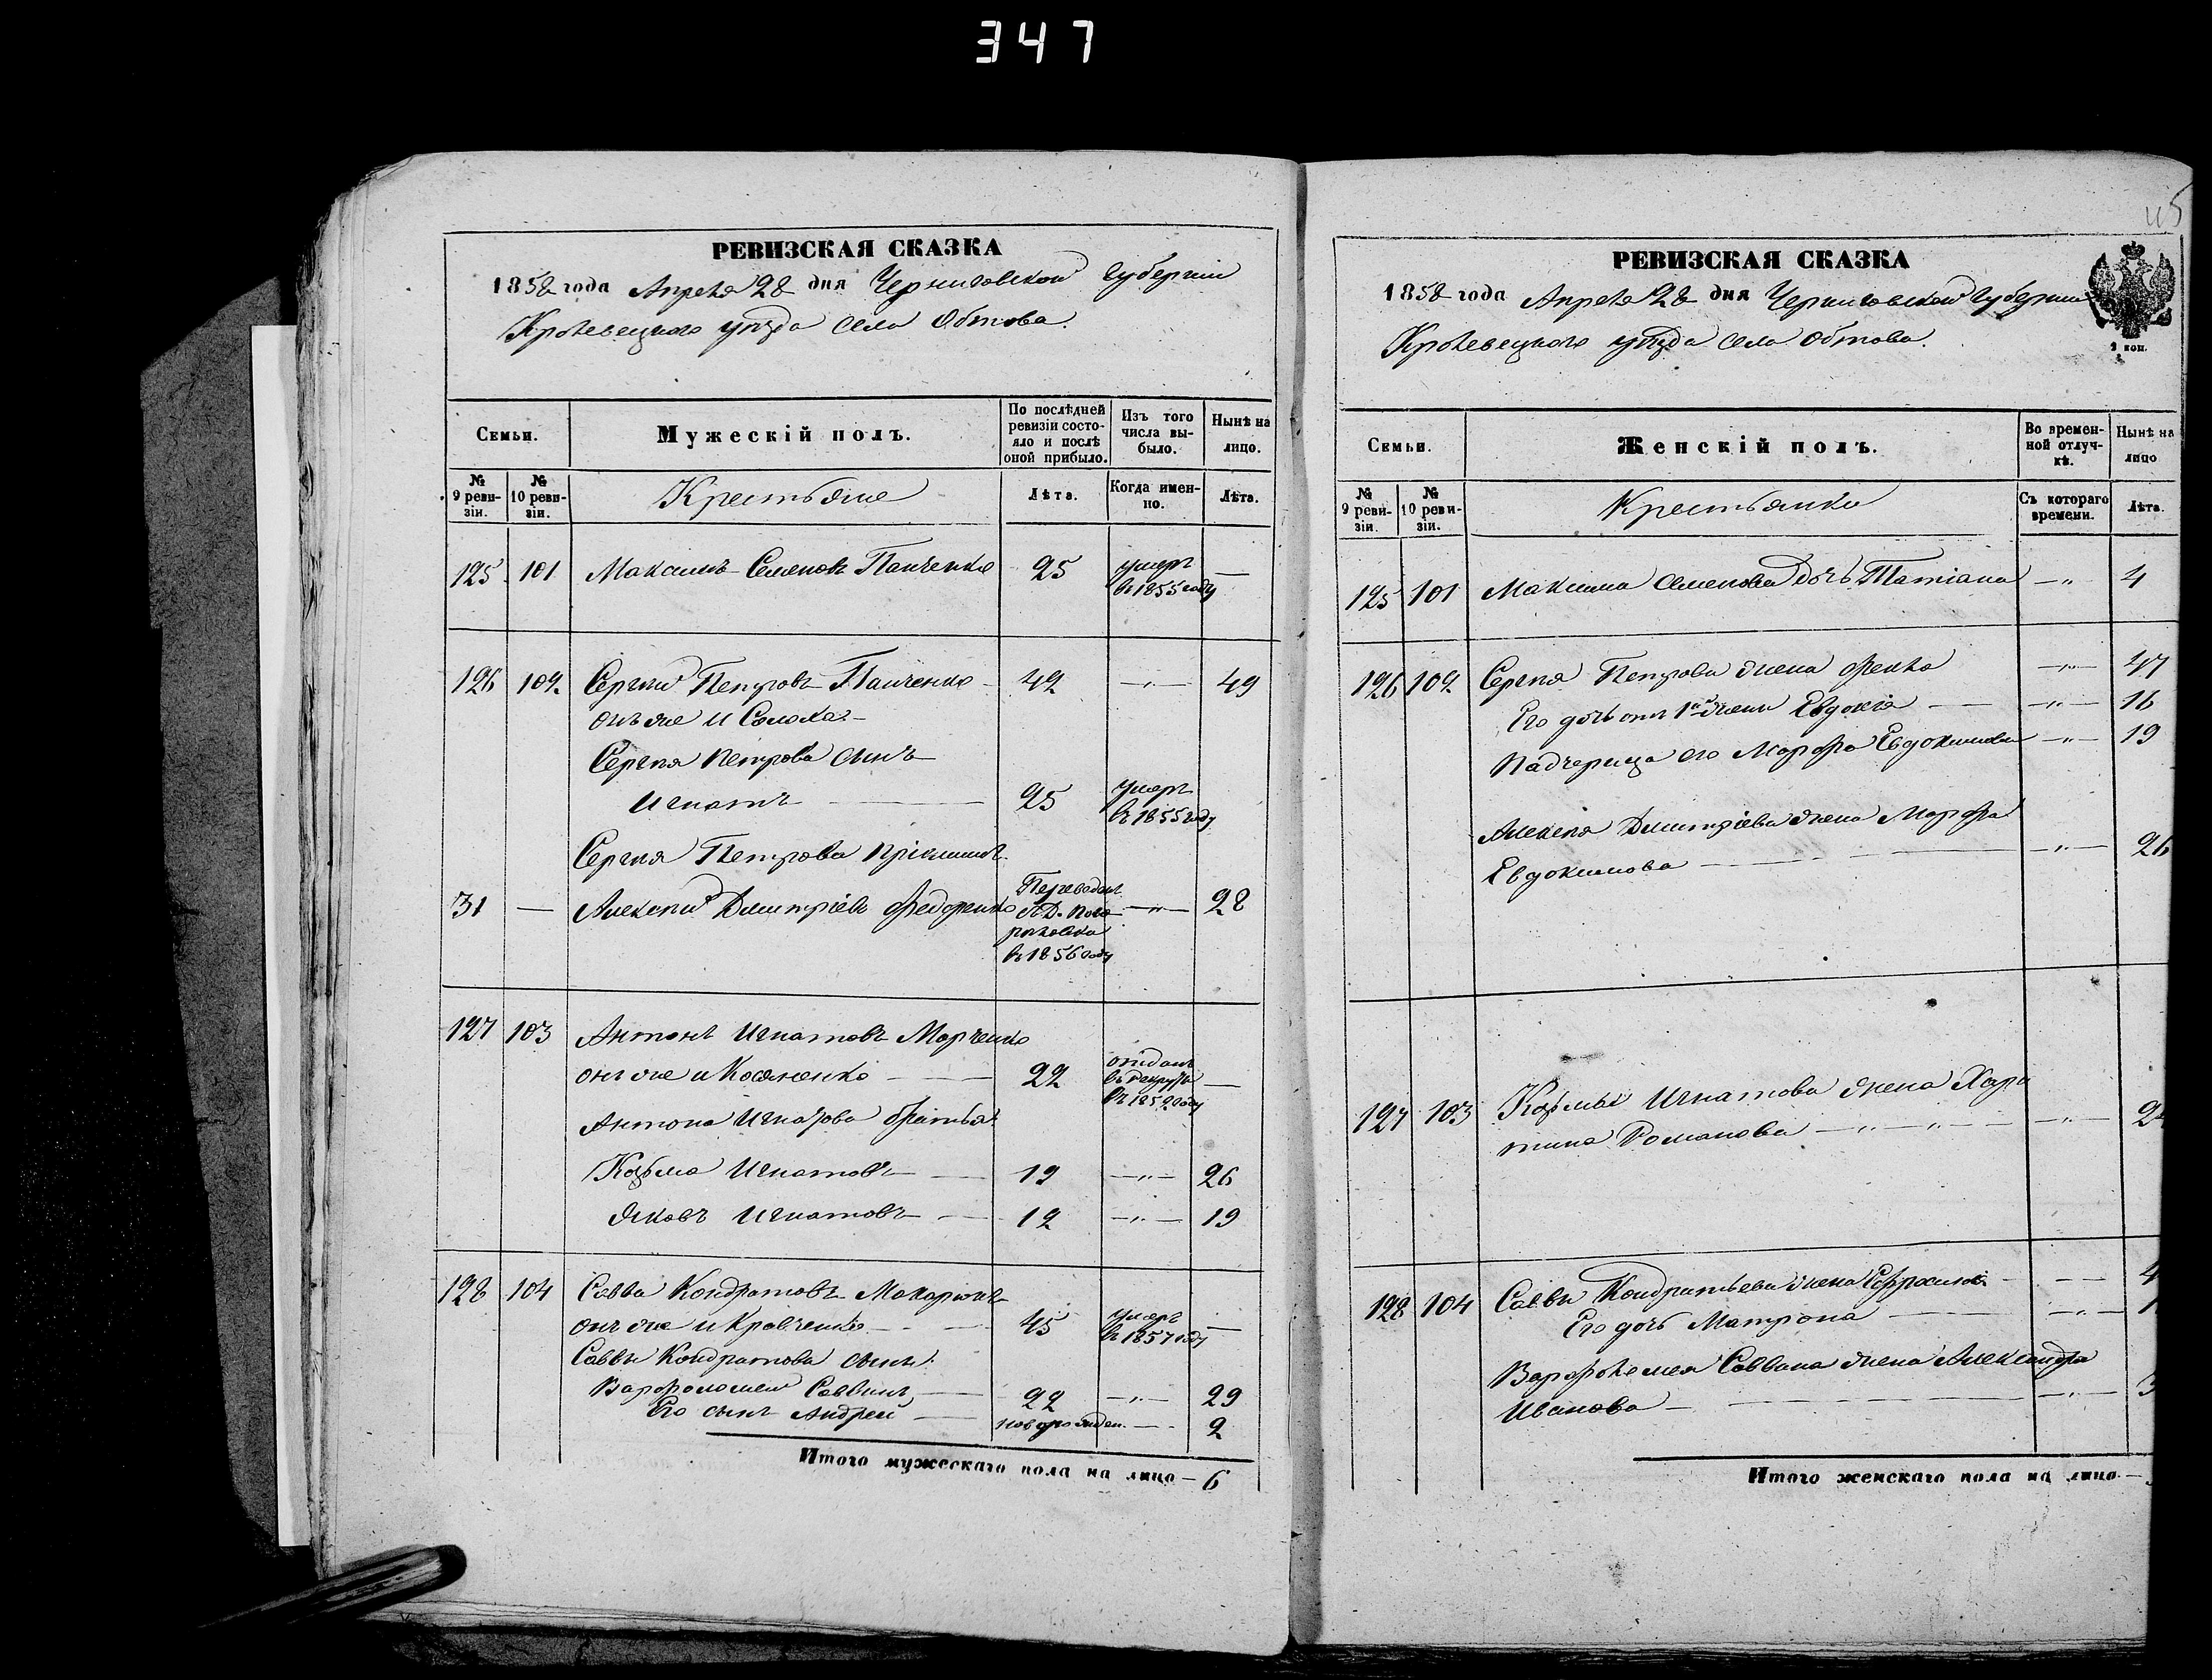 347
РЕВИЗСКАЯ СКАЗКА
1858 года Апреля 28 дня Черниговской губернии
Кролевецкого уѣзда села Обтова.
Семьи.
Мужескій полъ.
По послѣдней ревизіи состояло и послѣ оной прибыло.
Изъ того числа выбыло.
Нынѣ на лицо.
№ 9 ревизіи.
№ 10 ревизіи.
Крестьяне
Лѣта.
Когда именно.
Лѣта.
125 101 Максимъ Семеновъ Панченко 25 умеръ въ 1855 году —
126 102 Сергій Петровъ Панченко 42 —„— 49
онъ же и
Сергѣя Петрова сынъ
Игнатъ — 25 умеръ въ 1855 году
Сергѣя Петрова пріемышъ
31 — Алексѣй Дмитріевъ Федоренко Переведенъ въ 1856 году —„— 28
127 103 Антонъ Игнатовъ Марченко
онъ же и — 22 отданъ въ рекруты въ году —
Антона Игнатова братья:
Козьма Игнатовъ — 19 —„— 26
Яковъ Игнатовъ — 12 —„— 19
128 104 Савва Кондратовъ
онъ же и Кравченко — 45 умеръ въ 1857 году —
Саввы Кондратова сынъ:
Варфоломей Саввинъ — 22 —„— 29
Его сынъ Андрей — новорожден. — 2
Итого мужескаго пола на лицо — 6
115
РЕВИЗСКАЯ СКАЗКА
1858 года Апреля 28 дня Черниговской губернии
Кролевецкого уѣзда села Обтова.
2 коп.
Семьи.
Женскій полъ.
Во временной отлучкѣ.
Нынѣ на лицо
№ 9 ревизіи.
№ 10 ревизіи.
Крестьянки
Съ котораго времени.
Лѣта.
125 101 Максима Семенова дочь Татіана —„ 4
126 102 Сергѣя Петрова жена —„— 47
Его дочь отъ 1й жены Евдокія — —„— 16
Падчерица его Марфа Евдокимова —„— 19
Алексѣя Дмитріева жена Марфа
Евдокимова — —„— 26
127 103 Козьмы Игнатова жена Хари
тина Романова —„—„— —„— 2
128 104 Саввы Кондратьева жена Ефросинія — — 4
Его дочь Матрона — —„— 1
Варфоломея Саввина жена Александра
Иванова — —„— 3
Итого женскаго пола на лицо —